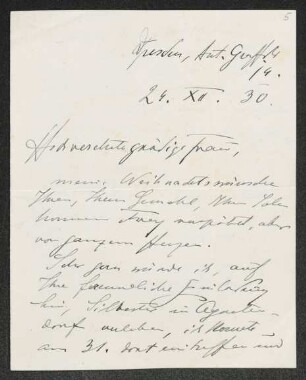 5
Dresden,
14.
24. XII. 30.
Hochverehrte gnädige Frau,
meine Weihnachtswünsche
Ihnen, Ihrem
kommen verspätet, aber
von ganzem Herzen.
Sehr gern würde ich, auf
Ihre freundliche Einladung
hin, Silvester in Agneten-
dorf ich könnte
am 31. dort eintreffen und